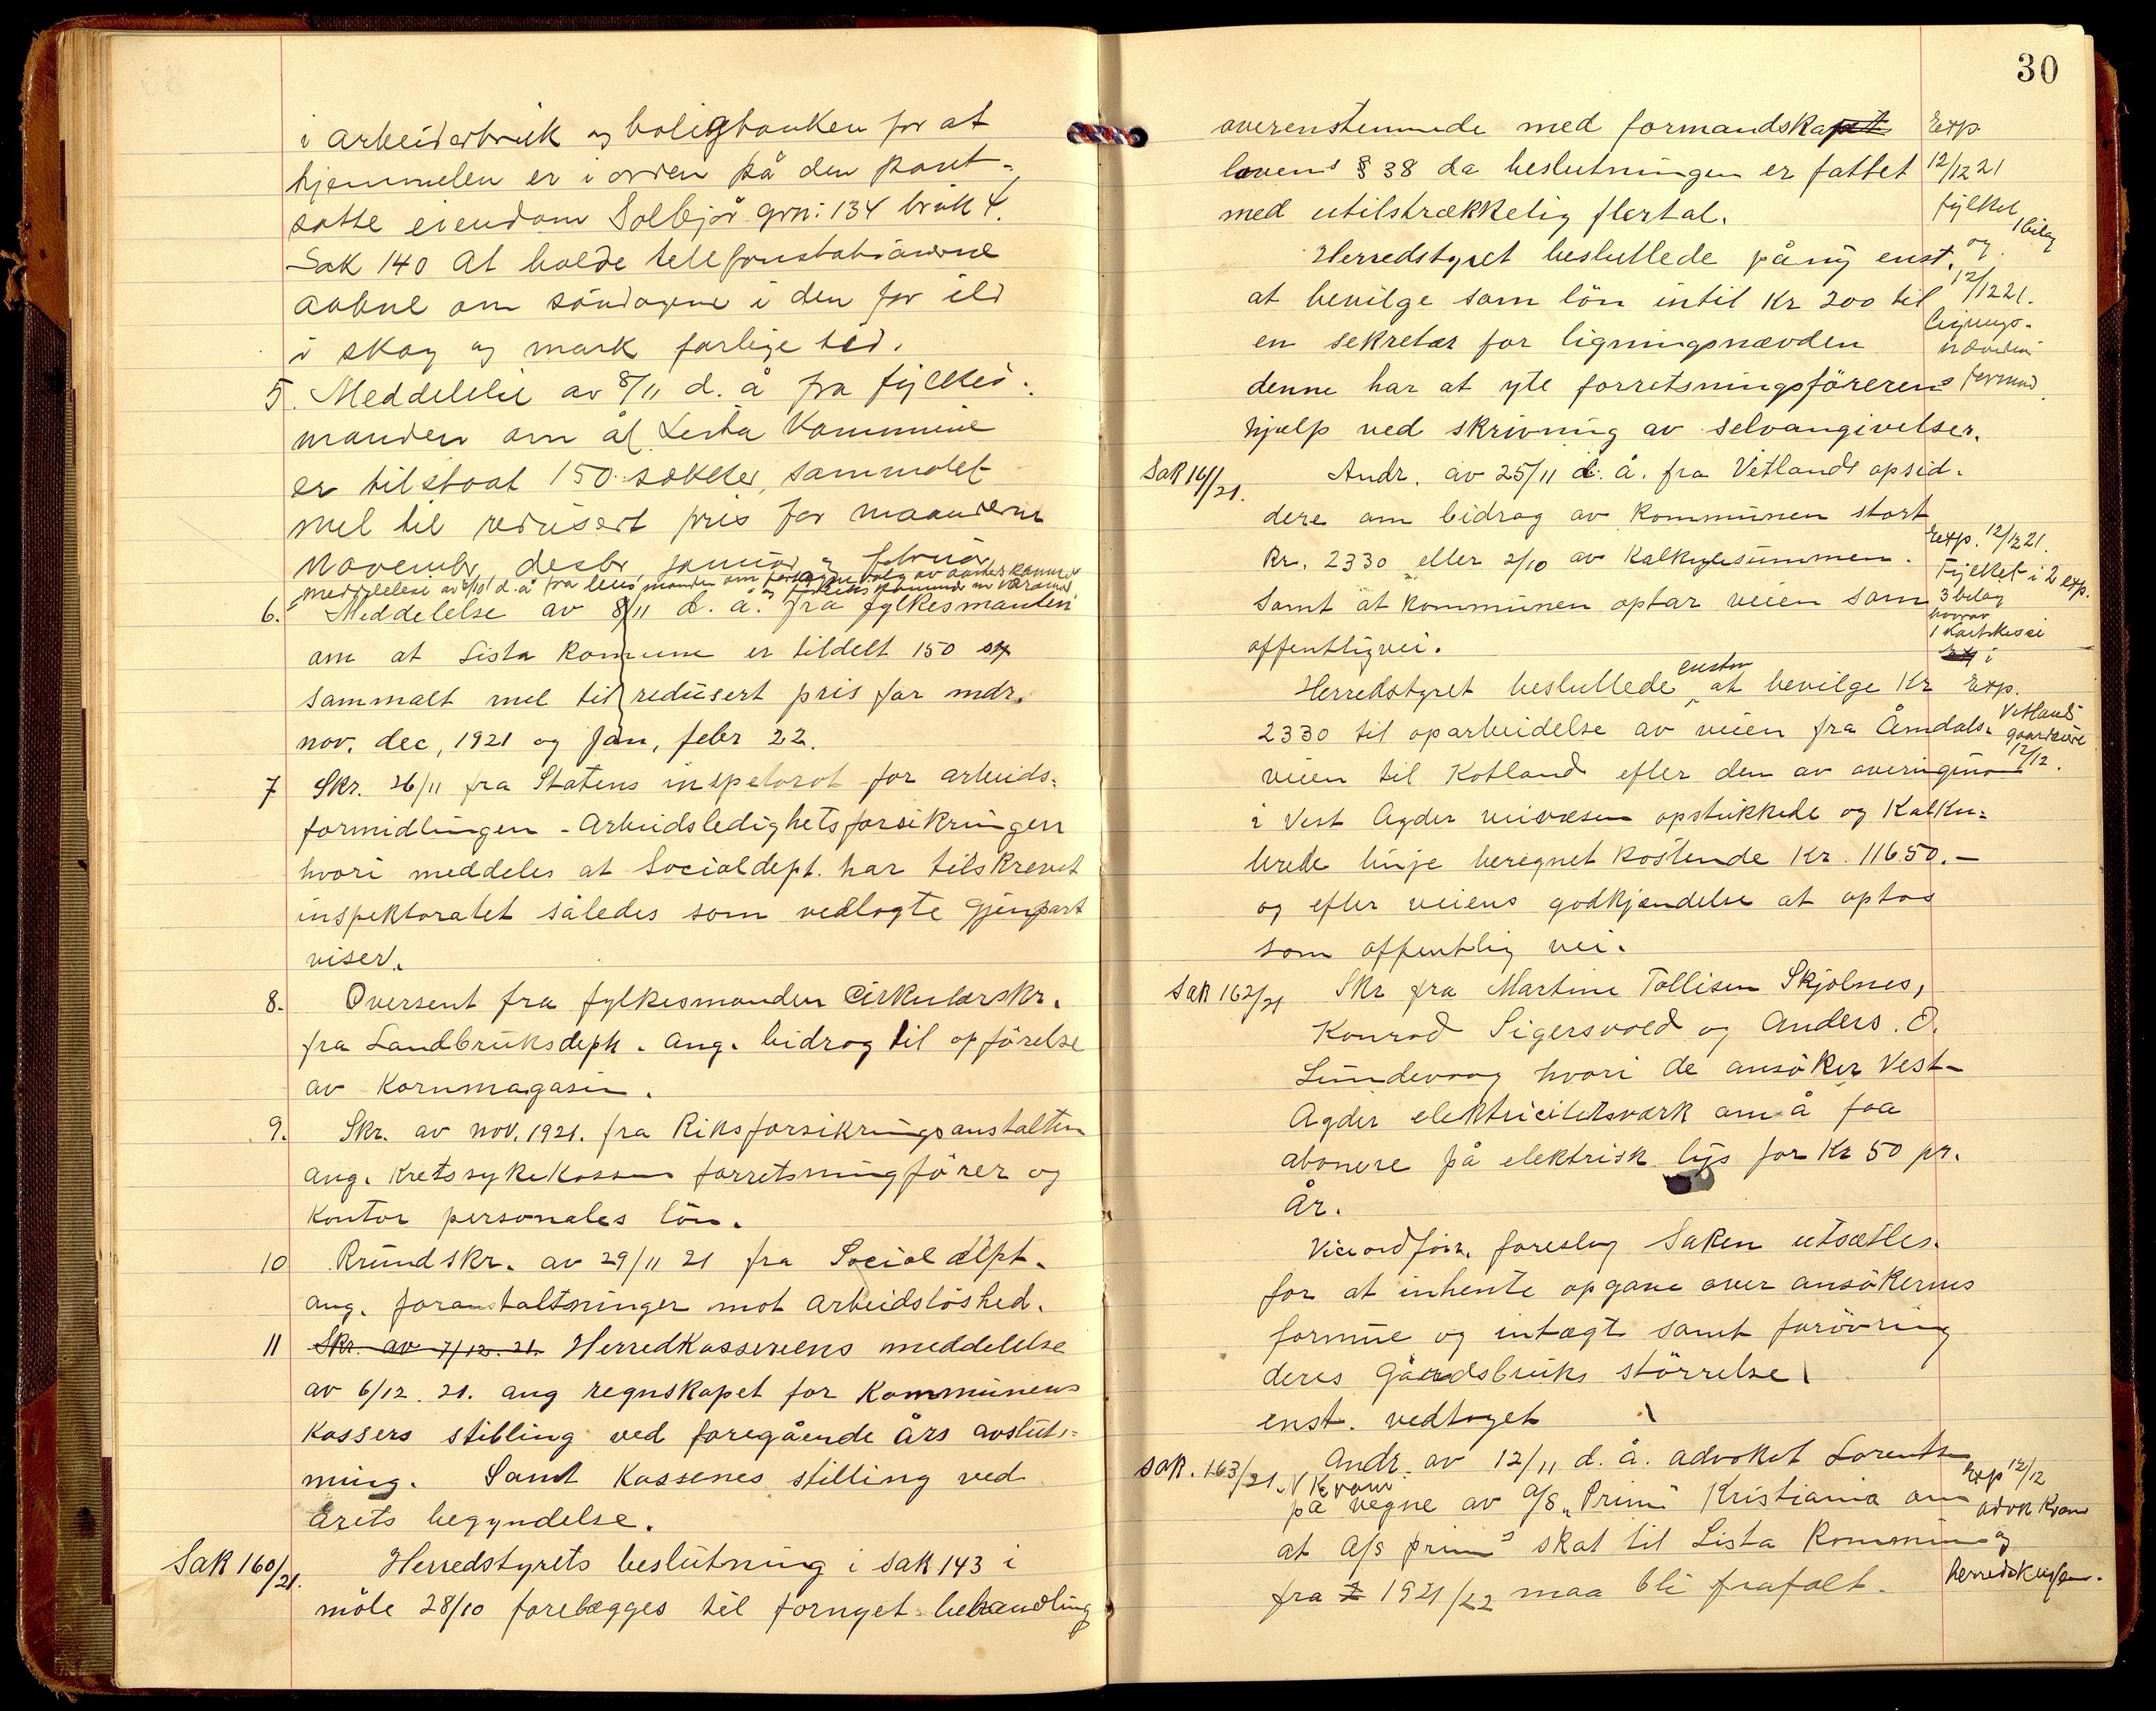 i arbeiderbruk og boligbanken for at
hjemmelen er i orden på den pant-
satte eiendom Solbjør grn: 134 bruk 4.
Sak 140 At holde telefonstationerne
aabne om söndagene i den for ild
i skog og mark farlige tid.
5. Meddelelse av 8/11 d. å fra fylkes-
manden om at Lista Kommune
er tilstaat 150 sækker sammalet
mel til redusert pris for maanderne
novembr, desbr januar og februar
meddelelse av 8/10 d. å fra lens manden om
6. Meddelelse av 8/11 d. å. fra fylkesmanden
om at Lista komune er tildelt 150 sk
sammalt mel til redusert pris for mdr.
nov. dec, 1921 og jan, febr 22.
7 Skr. 26/11 fra Statens inspetorat for arbeids-
formidlingen - Arbeidsledighetsforsikringen
hvori meddeles at Socialdept. har tilskrevet
inspektoratet således som vedlagte gjenpart
viser.
8. Oversent fra fylkesmanden Cirkulærskr.
fra Landbruksdept. ang. bidrag til opförelse
av Kornmagasin.
9. Skr. av nov. 1921. fra Riksforsikringsanstalten
ang. Kretssykekassens forretsningförer og
Kontor personales lön.
10 Rundskr. av 29/11 21 fra Social dept.
ang. foranstaltninger mot arbeidslöshed.
11 Skr. av 7/12. 21. Herredkasserens meddelelse
av 6/12. 21. ang regnskapet for Kommunens
Kassers stilling ved foregående års avslut-
ning. Samt Kassenes stilling ved
årets begyndelse.
Sak 160/21. Herredstyrets beslutning i sak 143 i
möte 28/10 forelægges til fornyet behandling
30
overenstemmede med formandskapet
lovens § 38 da beslutningen er fattet
med utilstrækkelig flertal.
Exp.
12/12 21
fylket
1 bilag
og
12/12 21.
lignings-
nævden
formand
Herredstyret besluttede påny enst.
at bevilge som lön intil Kr 200 til
en sekretær for ligningsnævden
denne har at yte forretsningsförerens
hjælp ved skrivning av selvangivelser.
Sak 161/21. Andr. av 25/11 d. å. fra Vetlands opsid-
dere om bidrag av kommunen stort
Kr. 2330 eller 2/10 av Kalkylesummen.
samt at kommunen optar veien som
offentligvei.
Exp. 12/12 21.
Fylket i 2 exp.
3 bilag
hvorav
1 Kartskisse
Exp i
Herredstyret besluttede enstm at bevilge Kr
2330 til oparbeidelse av veien fra Åmdals-
veien til Kotland efter den av averingeniör
i Vest Agder veivæsen opstukkede og Kalku-
lerede linje beregnet kostende Kr. 11650.-
og efter veiens godkjendelse at optas
som offentlig vei.
Exp.
Vetlands
gaardeiere
12/12.
Sak 162/21 Skr fra Martine Tollisen Skjolnes,
Konrad Sigersvold og Anders. O.
Lundevaag hvori de ansöker Vest-
Agder elektricitetsværk om å faa
abonere på elektrisk lys for Kr 50 pr.
År.
Viceordförr. foreslog Saken utsættes.
for at inhente opgave over ansökernes
formue og intægt samt forövrig
deres Gårdsbruks störrelse
enst. vedtaget
Sak. 163/21. Andr. av 12/11 d. å. advokat Lorents
N Kvam
på vegne av A/S "Prim" Kristiania om
at A/S prim's skat til Lista Kommune
fra 1921/22 maa bli frafalt.
Exp 12/12
advok Kvam
og
herredskassen.